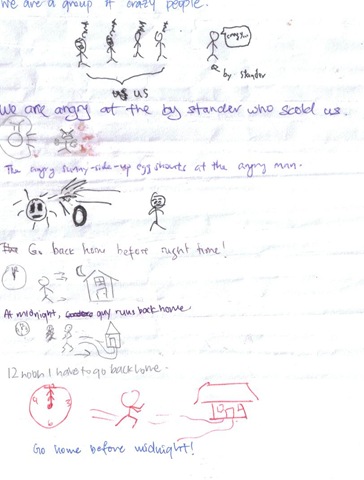 We are a group of crazy people.
crazy...
us
by stander
We are angry at the by stander who scold us.
The angry sunny-side-up egg shouts at the angry man.
Go back home before night time!
At midnight, guy runs back home
12 noon I have to go back home.
Go home before midnight!